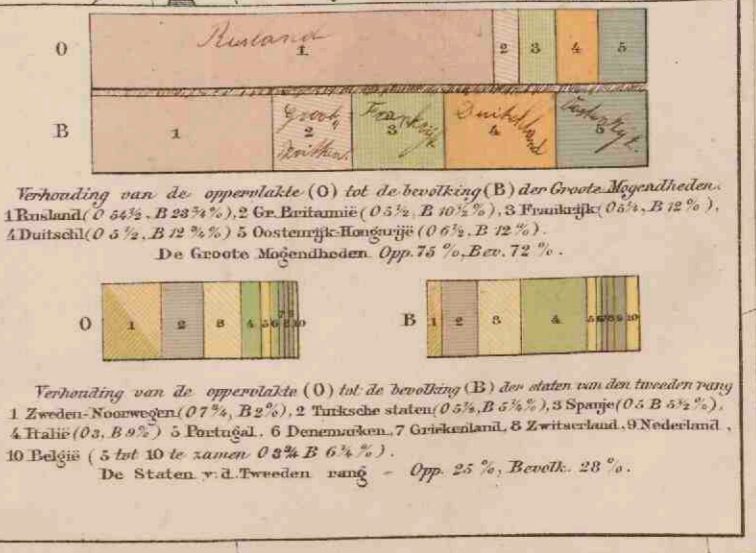 Rusland
O 1 2 3 4 5
Groot Frankrijk Duitschland Oostenrijk.
B 1 2 3 4 5
Verhouding van de oppervlakte (O) tot de bevolking (B) der Groote Mogendheden.
1 Rusland (O 54½, B 23¾%), 2 Gr. Britannië (O 3½, B 10½%), 3 Frankrijk (O 5¼, B 12%),
4 Duitschl (O 5½, B 12¾%) 5 Oostenrijk-Hongarijë (O 6½, B 12%).
De Groote Mogendheden Opp. 75 %, Bev. 72 %.
O 1 2 3 4 5 6 7 8 9 10
B 1 2 3 4 5 6 7 8 9 10
Verhouding van de oppervlakte (O) tot de bevolking (B) der staten van den tweeden rang
1 Zweden-Noorwegen (O 7¾, B 2%), 2 Turksche staten (O 5¾, B 5¼%), 3 Spanje (O 5 B 5½%),
4 Italië (O 3, B 9%) 5 Portugal, 6 Denemarken, 7 Griekenland, 8 Zwitserland, 9 Nederland,
10 België (5 tot 10 te zamen O 3¾ B 6¼%).
De Staten v. d. Tweeden rang - Opp. 25 %, Bevolk. 28 %.